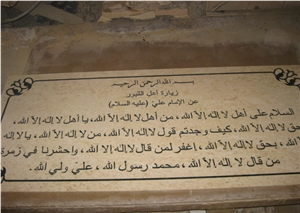 بسم الله الرحمن الرحيم
زيارة أهل القبور
عن الإمام علي (عليه السلام)
السلام على أهل لا إله إلا الله، من أهل لا إله إلا الله، يا أهل لا إله إلا الله،
بحق لا إله إلا الله، كيف وجدتم قول لا إله إلا الله، من لا إله إلا الله، يا لا إله
الله، بحق لا إله إلا الله، إغفر لمن قال لا إله إلا الله، واحشرنا في زمرة
من قال لا إله إلا الله، محمد رسول الله، علي ولي الله.